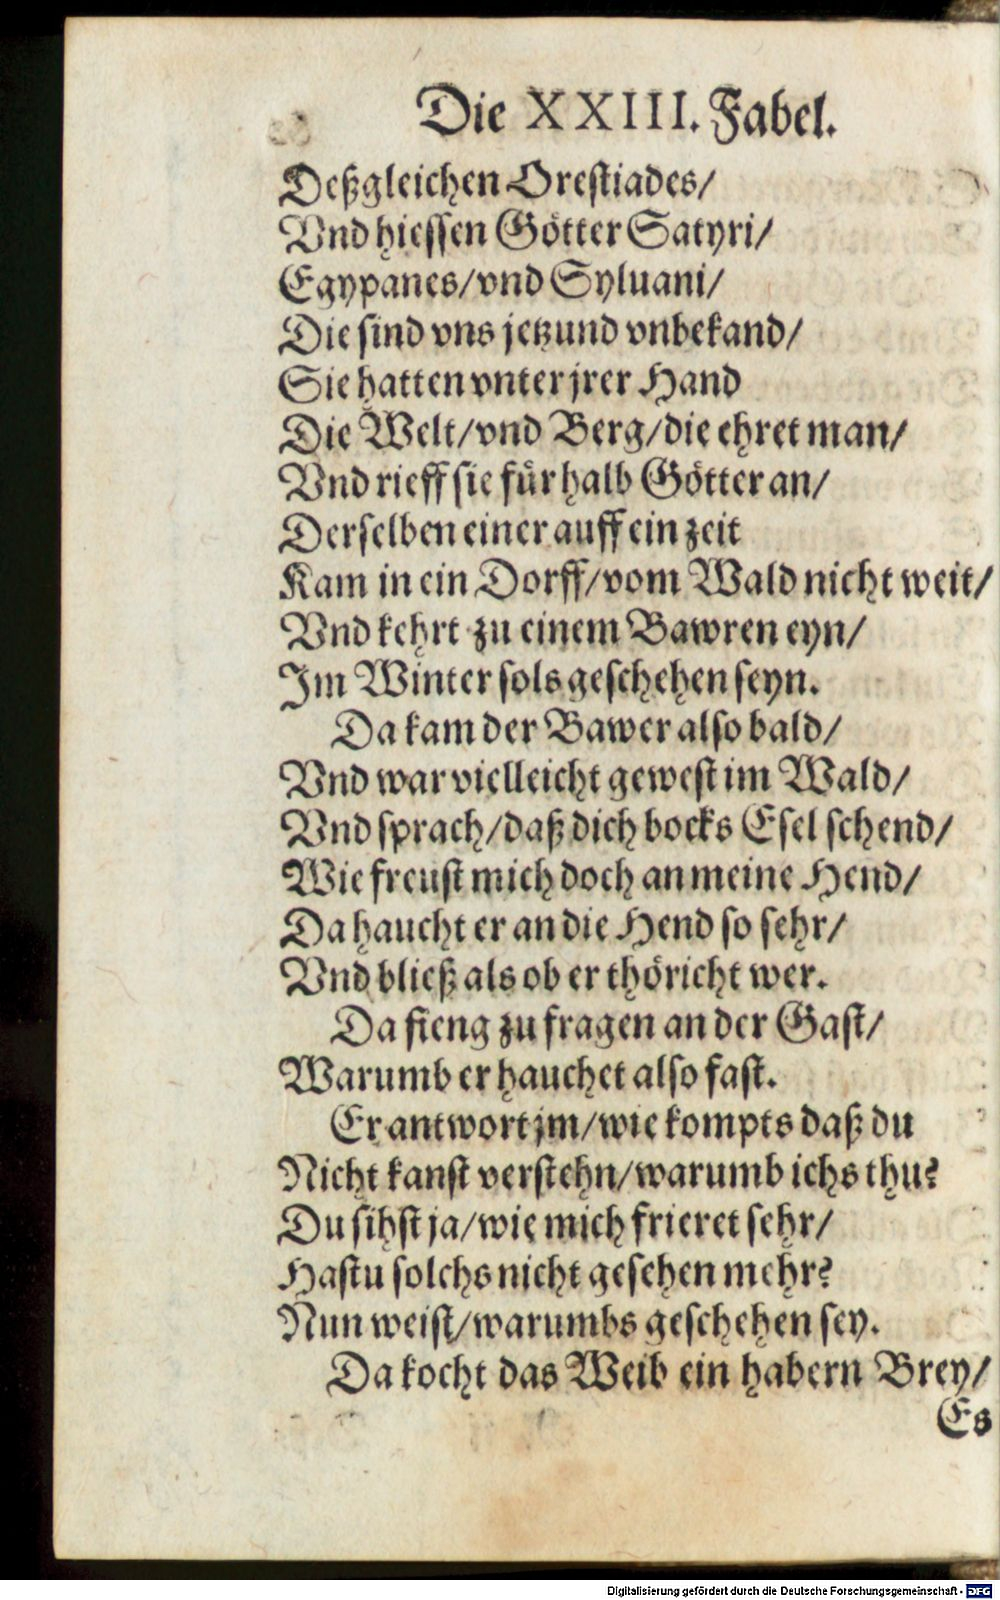 Die XXIII. Fabel.
Deßgleichen Orestiades/
Vnd hiessen Götter Satyri/
Egypanes/vnd Syluani/
Die sind vns jetzund vnbekand/
Sie hatten vnter jrer Hand
Die Welt/vnd Berg/die ehret man/
Vnd rieff sie für halb Götter an/
Derselben einer auff ein zeit
Kam in ein Dorff/vom Wald nicht weit/
Vnd kehrt zu einem Bawren eyn/
Im Winter sols geschehen seyn.
Da kam der Bawer also bald/
Vnd war vielleicht gewest im Wald/
Vnd sprach/daß dich bocks Esel schend/
Wie freust mich doch an meine Hend/
Da haucht er an die Hend so sehr/
Vnd bließ als ob er thöricht wer.
Da fieng zu fragen an der Gast/
Warumb er hauchet also fast.
Er antwort jm/wie kompts daß du
Nicht kanst verstehn/warumb ichs thu?
Du sihst ja/wie mich frieret sehr/
Hastu solchs nicht gesehen mehr?
Nun weist/warumbs geschehen sey.
Da kocht das Weib ein habern Brey/
Es
Digitalisierung gefördert durch die Deutsche Forschungsgemeinschaft - DFG